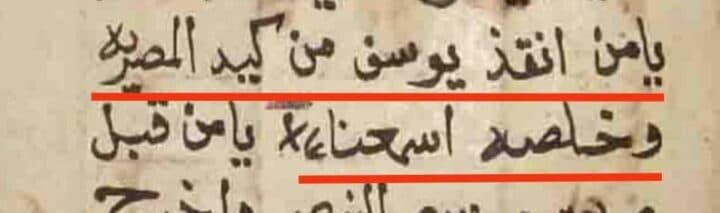 يامن انقذ يوسف من كيد المصريه
وخلصه اسمعنا يامن قبل